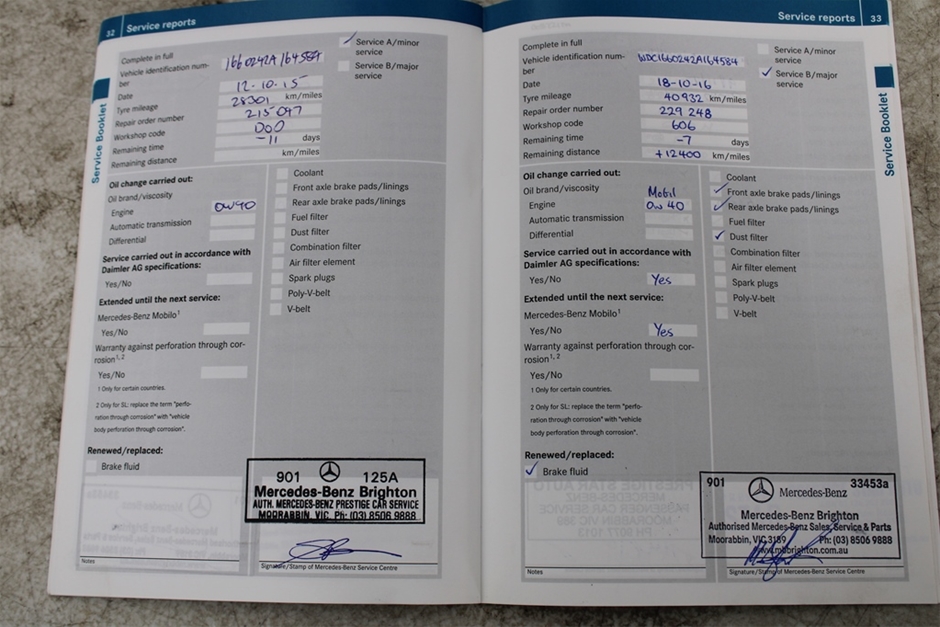 32 Service reports
Complete in full
Vehicle identification num-
ber 1660242A164584
Date 12-10-15
Tyre mileage 28301 km/miles
Repair order number 215047
Workshop code
Remaining time -11 days
Remaining distance km/miles
Service A/minor
service
Service B/major
service
Service Booklet
Oil change carried out:
Oil brand/viscosity
Engine 0w40
Automatic transmission
Differential
Service carried out in accordance with
Daimler AG specifications:
Yes/No
Extended until the next service:
Mercedes-Benz Mobilo1
Yes/No
Warranty against perforation through cor-
rosion1, 2
Yes/No
1 Only for certain countries.
2 Only for SL: replace the term "perfo-
ration through corrosion" with "vehicle
body perforation through corrosion".
Renewed/replaced:
Brake fluid
Coolant
Front axle brake pads/linings
Rear axle brake pads/linings
Fuel filter
Dust filter
Combination filter
Air filter element
Spark plugs
Poly-V-belt
V-belt
901 125A
Mercedes-Benz Brighton
AUTH. MERCEDES-BENZ PRESTIGE CAR SERVICE
MOORABBIN, VIC. Ph: (03) 8506 9888
Notes
Signature/Stamp of Mercedes-Benz Service Centre
Service reports 33
Complete in full
Vehicle identification num-
ber WDC1660242A164584
Date 18-10-16
Tyre mileage 40932 km/miles
Repair order number 229 248
Workshop code 606
Remaining time -7 days
Remaining distance +12400 km/miles
Service A/minor
service
Service B/major
service
Service Booklet
Oil change carried out:
Oil brand/viscosity Mobil
Engine 0w 40
Automatic transmission
Differential
Service carried out in accordance with
Daimler AG specifications:
Yes/No Yes
Extended until the next service:
Mercedes-Benz Mobilo1
Yes/No Yes
Warranty against perforation through cor-
rosion1, 2
Yes/No
1 Only for certain countries.
2 Only for SL: replace the term "perfo-
ration through corrosion" with "vehicle
body perforation through corrosion".
Renewed/replaced:
Brake fluid
Coolant
Front axle brake pads/linings
Rear axle brake pads/linings
Fuel filter
Dust filter
Combination filter
Air filter element
Spark plugs
Poly-V-belt
V-belt
901 33453a
Mercedes-Benz
Mercedes-Benz Brighton
Authorised Mercedes-Benz Sales, Service & Parts
Moorabbin, VIC 3189 Ph: (03) 8506 9888
www.mbbrighton.com.au
Notes
Signature/Stamp of Mercedes-Benz Service Centre